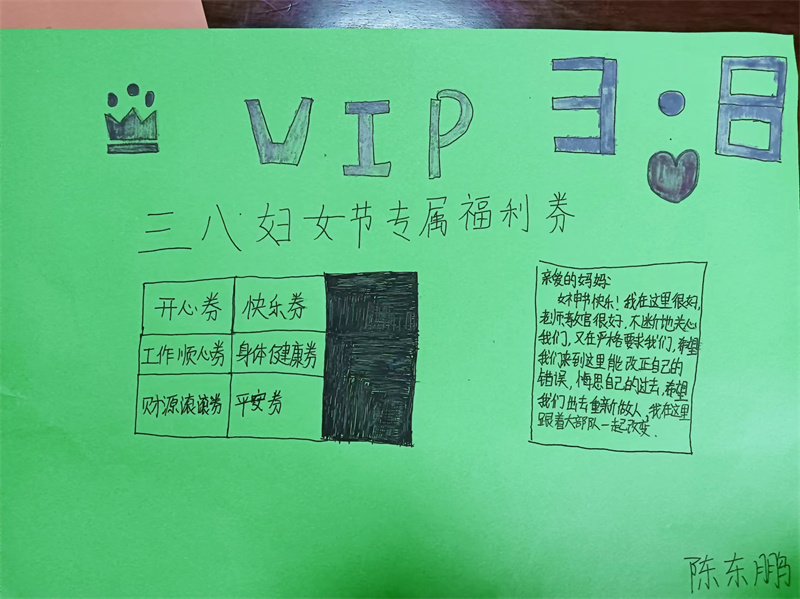 VIP 3·8
三八妇女节专属福利券
开心券 快乐券
工作顺心券 身体健康券
财源滚滚券 平安券
亲爱的妈妈:
女神节快乐!我在这里很好,
老师教官很好,不断地关心
我们,又在严格要求我们,希望
我们来到这里能改正自己的
错误,悔思自己的过去,希望
我们出去重新做人,我在这里
跟着大部队一起改变.
陈东鹏